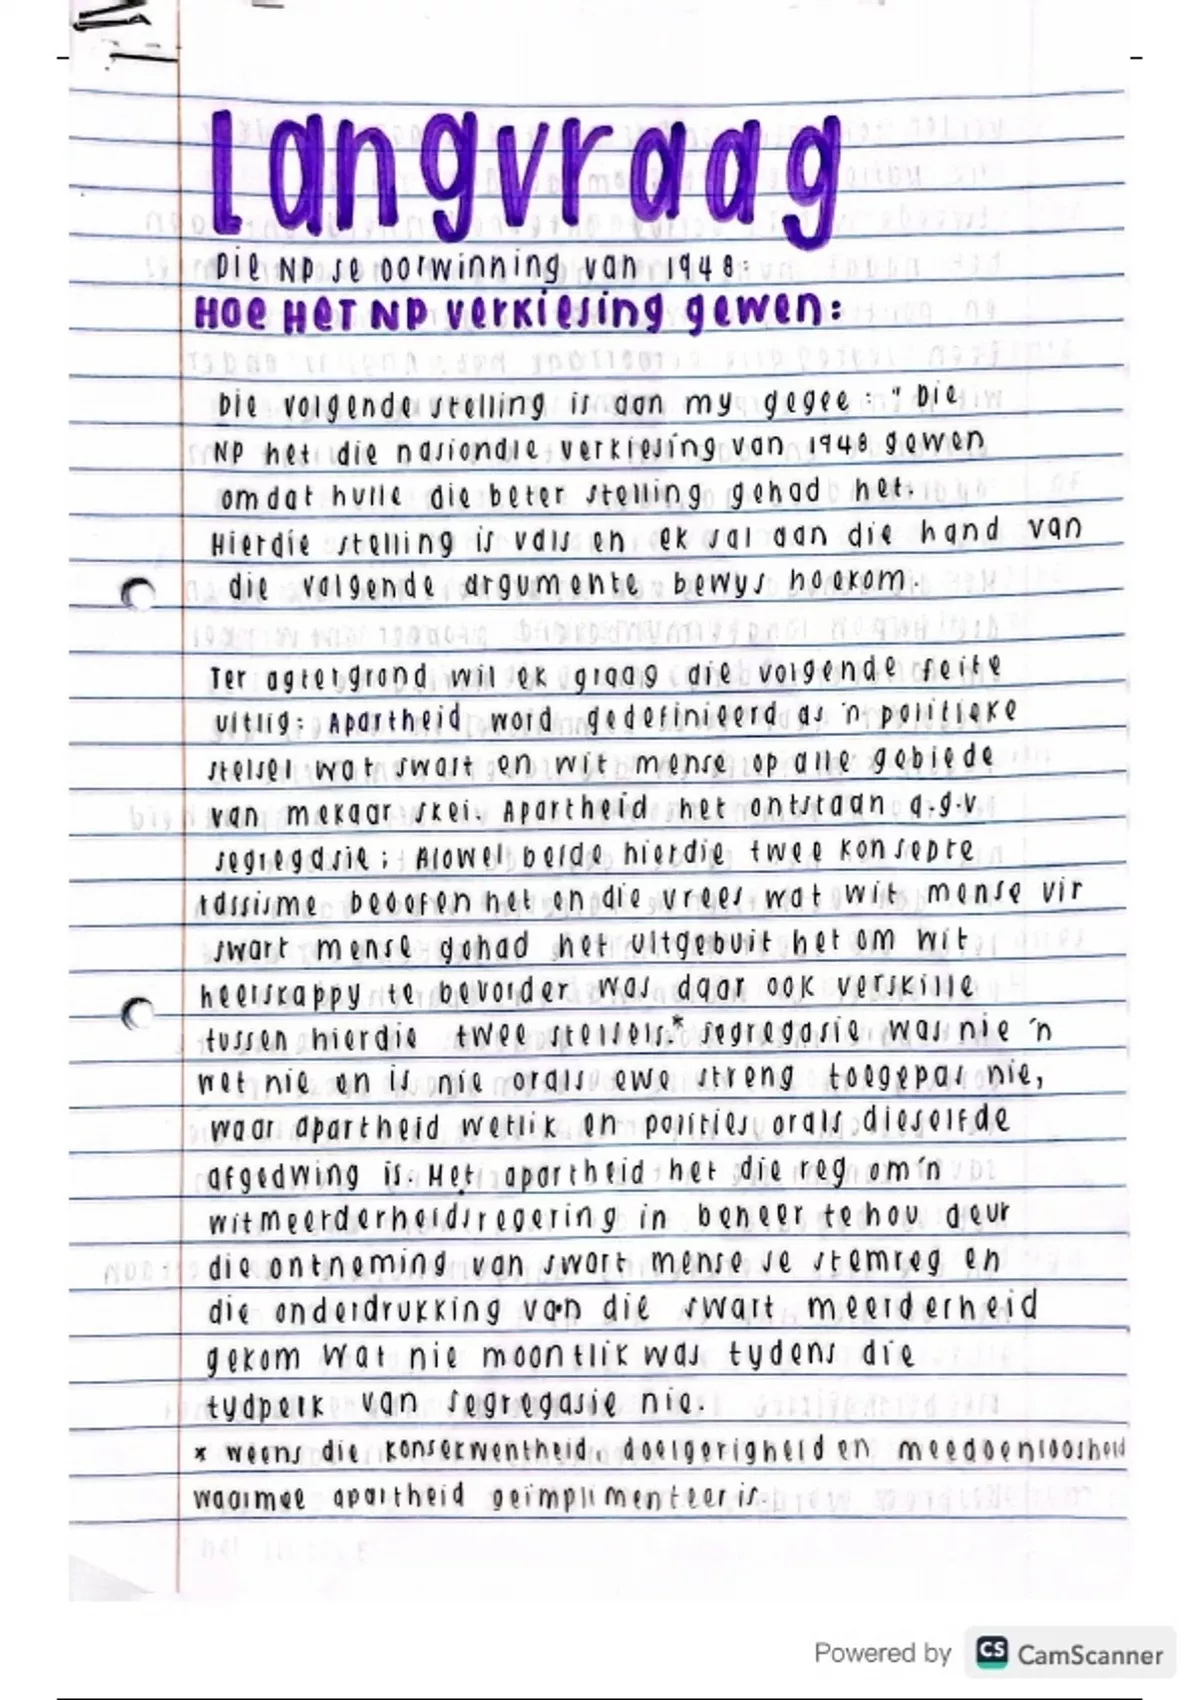 Langvraag
Die NP se oorwinning van 1948:
HOE HET NP verkiesing gewen:
Die volgende stelling is aan my gegee: "Die
NP het die nasionale verkiesing van 1948 gewen
omdat hulle die beter stelling gehad het.
Hierdie stelling is vals en ek sal aan die hand van
die volgende argumente bewys hoekom.
Ter agtergrond wil ek graag die volgende feite
uitlig: Apartheid word gedefinieerd as 'n politieke
stelsel wat swart en wit mense op alle gebiede
van mekaar skei. Apartheid het ontstaan a.g.v.
segregasie; Alowel beide hierdie twee konsepte
rassisme beoefen het en die vrees wat wit mense vir
swart mense gehad het uitgebuit het om wit
heerskappy te bevorder was daar ook verskille
tussen hierdie twee stelsels.* Segregasie was nie 'n
wet nie en is nie orals ewe streng toegepas nie,
waar apartheid wetlik en polities orals dieselfde
afgedwing is. Met apartheid het die reg om 'n
wit meerderheidsregering in beheer te hou deur
die ontneming van swart mense se stemreg en
die onderdrukking van die swart meerderheid
gekom wat nie moontlik was tydens die
tydperk van segregasie nie.
* weens die konsekwentheid, doelgerigheid en meedoenloosheid
waarmee apartheid geimplimenteer is.
Powered by CS CamScanner